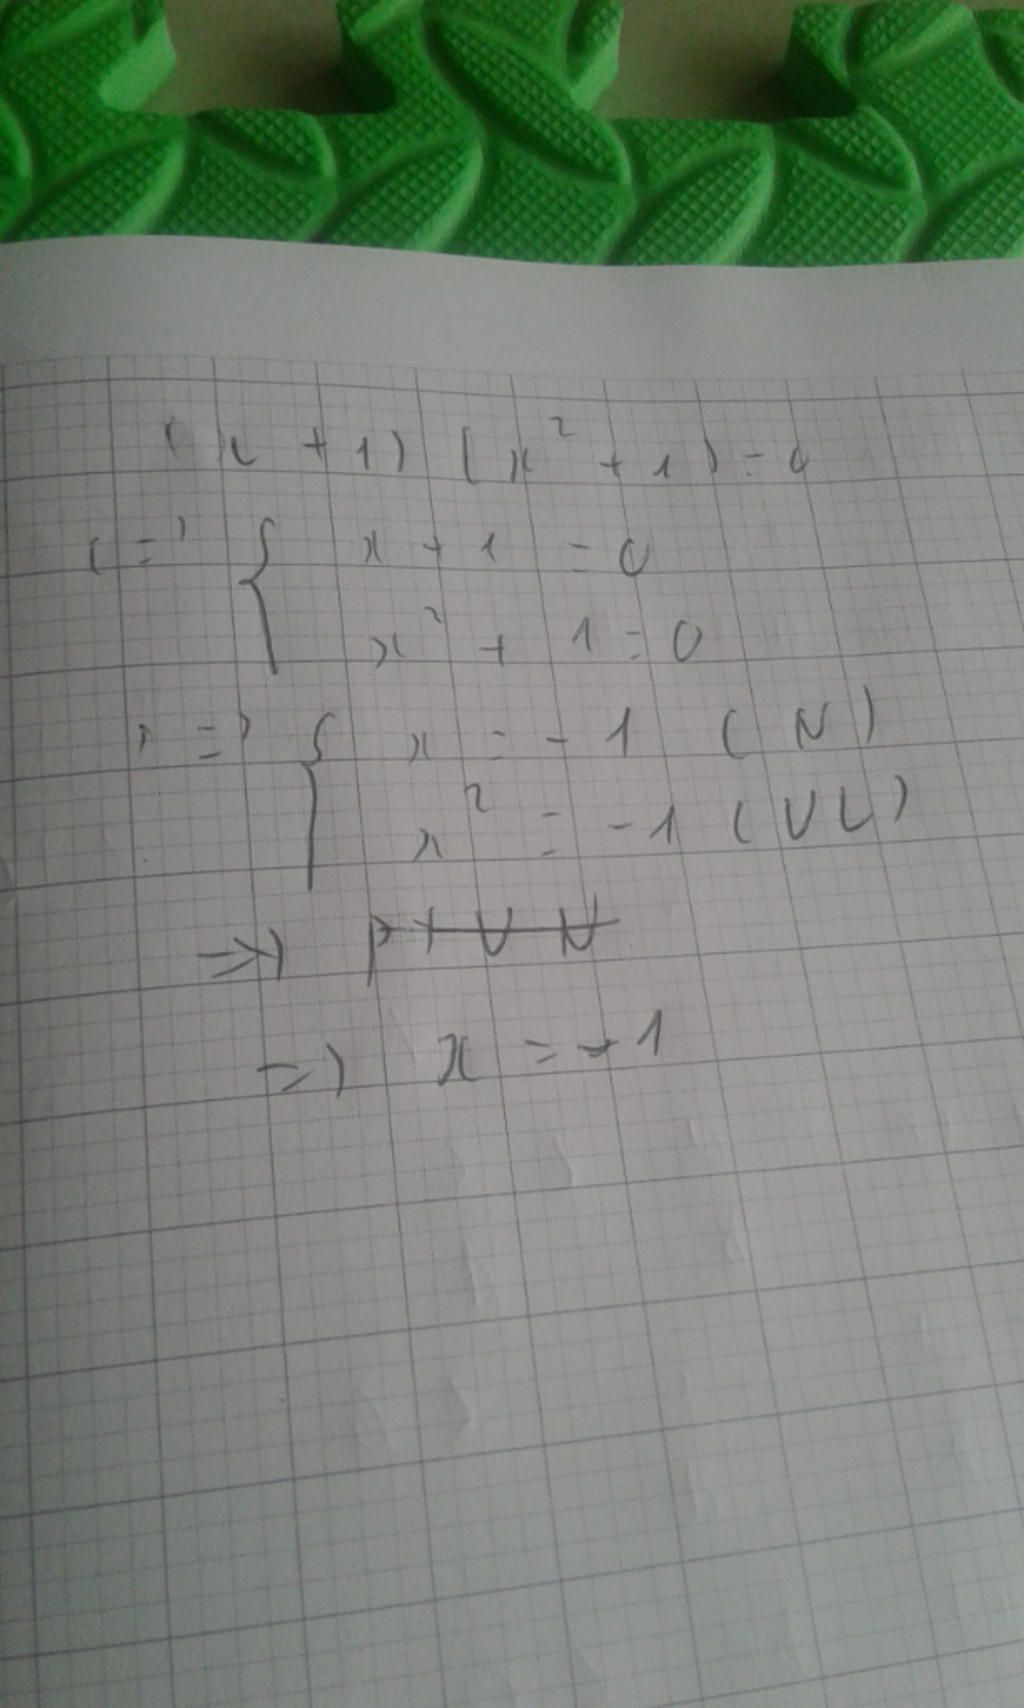 (x + 1) (x² + 1) = 0
<=> { x + 1 = 0
x² + 1 = 0
<=> { x = -1 (N)
x² = -1 (VL)
=> PTVN
=> x = -1